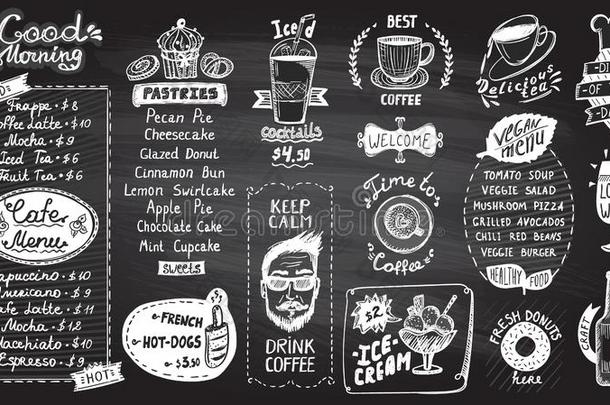 Good
Morning
Frappe • $8
Coffee latte • $10
Mocha • $9
Iced Tea • $6
Fruit Tea • $6
Cafe
Menu
Cappuccino • $10
Americano • $9
Cafe latte • $11
Mocha • $12
Macchiato • $10
Espresso • $9
HOT
PASTRIES
Pecan Pie
Cheesecake
Glazed Donut
Cinnamon Bun
Lemon Swirlcake
Apple Pie
Chocolate Cake
Mint Cupcake
SWEETS
FRENCH
HOT-DOGS
• $3.50
Iced
cocktails
$4.50
KEEP
CALM
DRINK
COFFEE
BEST
COFFEE
WELCOME
Time to
Coffee
$2
ICE-
CREAM
Delicious
tea
VEGAN
menu
TOMATO SOUP
VEGGIE SALAD
MUSHROOM PIZZA
GRILLED AVOCADOS
CHILI RED BEANS
VEGGIE BURGER
HEALTHY FOOD
FRESH DONUTS
here
OF
DI
CRAFT